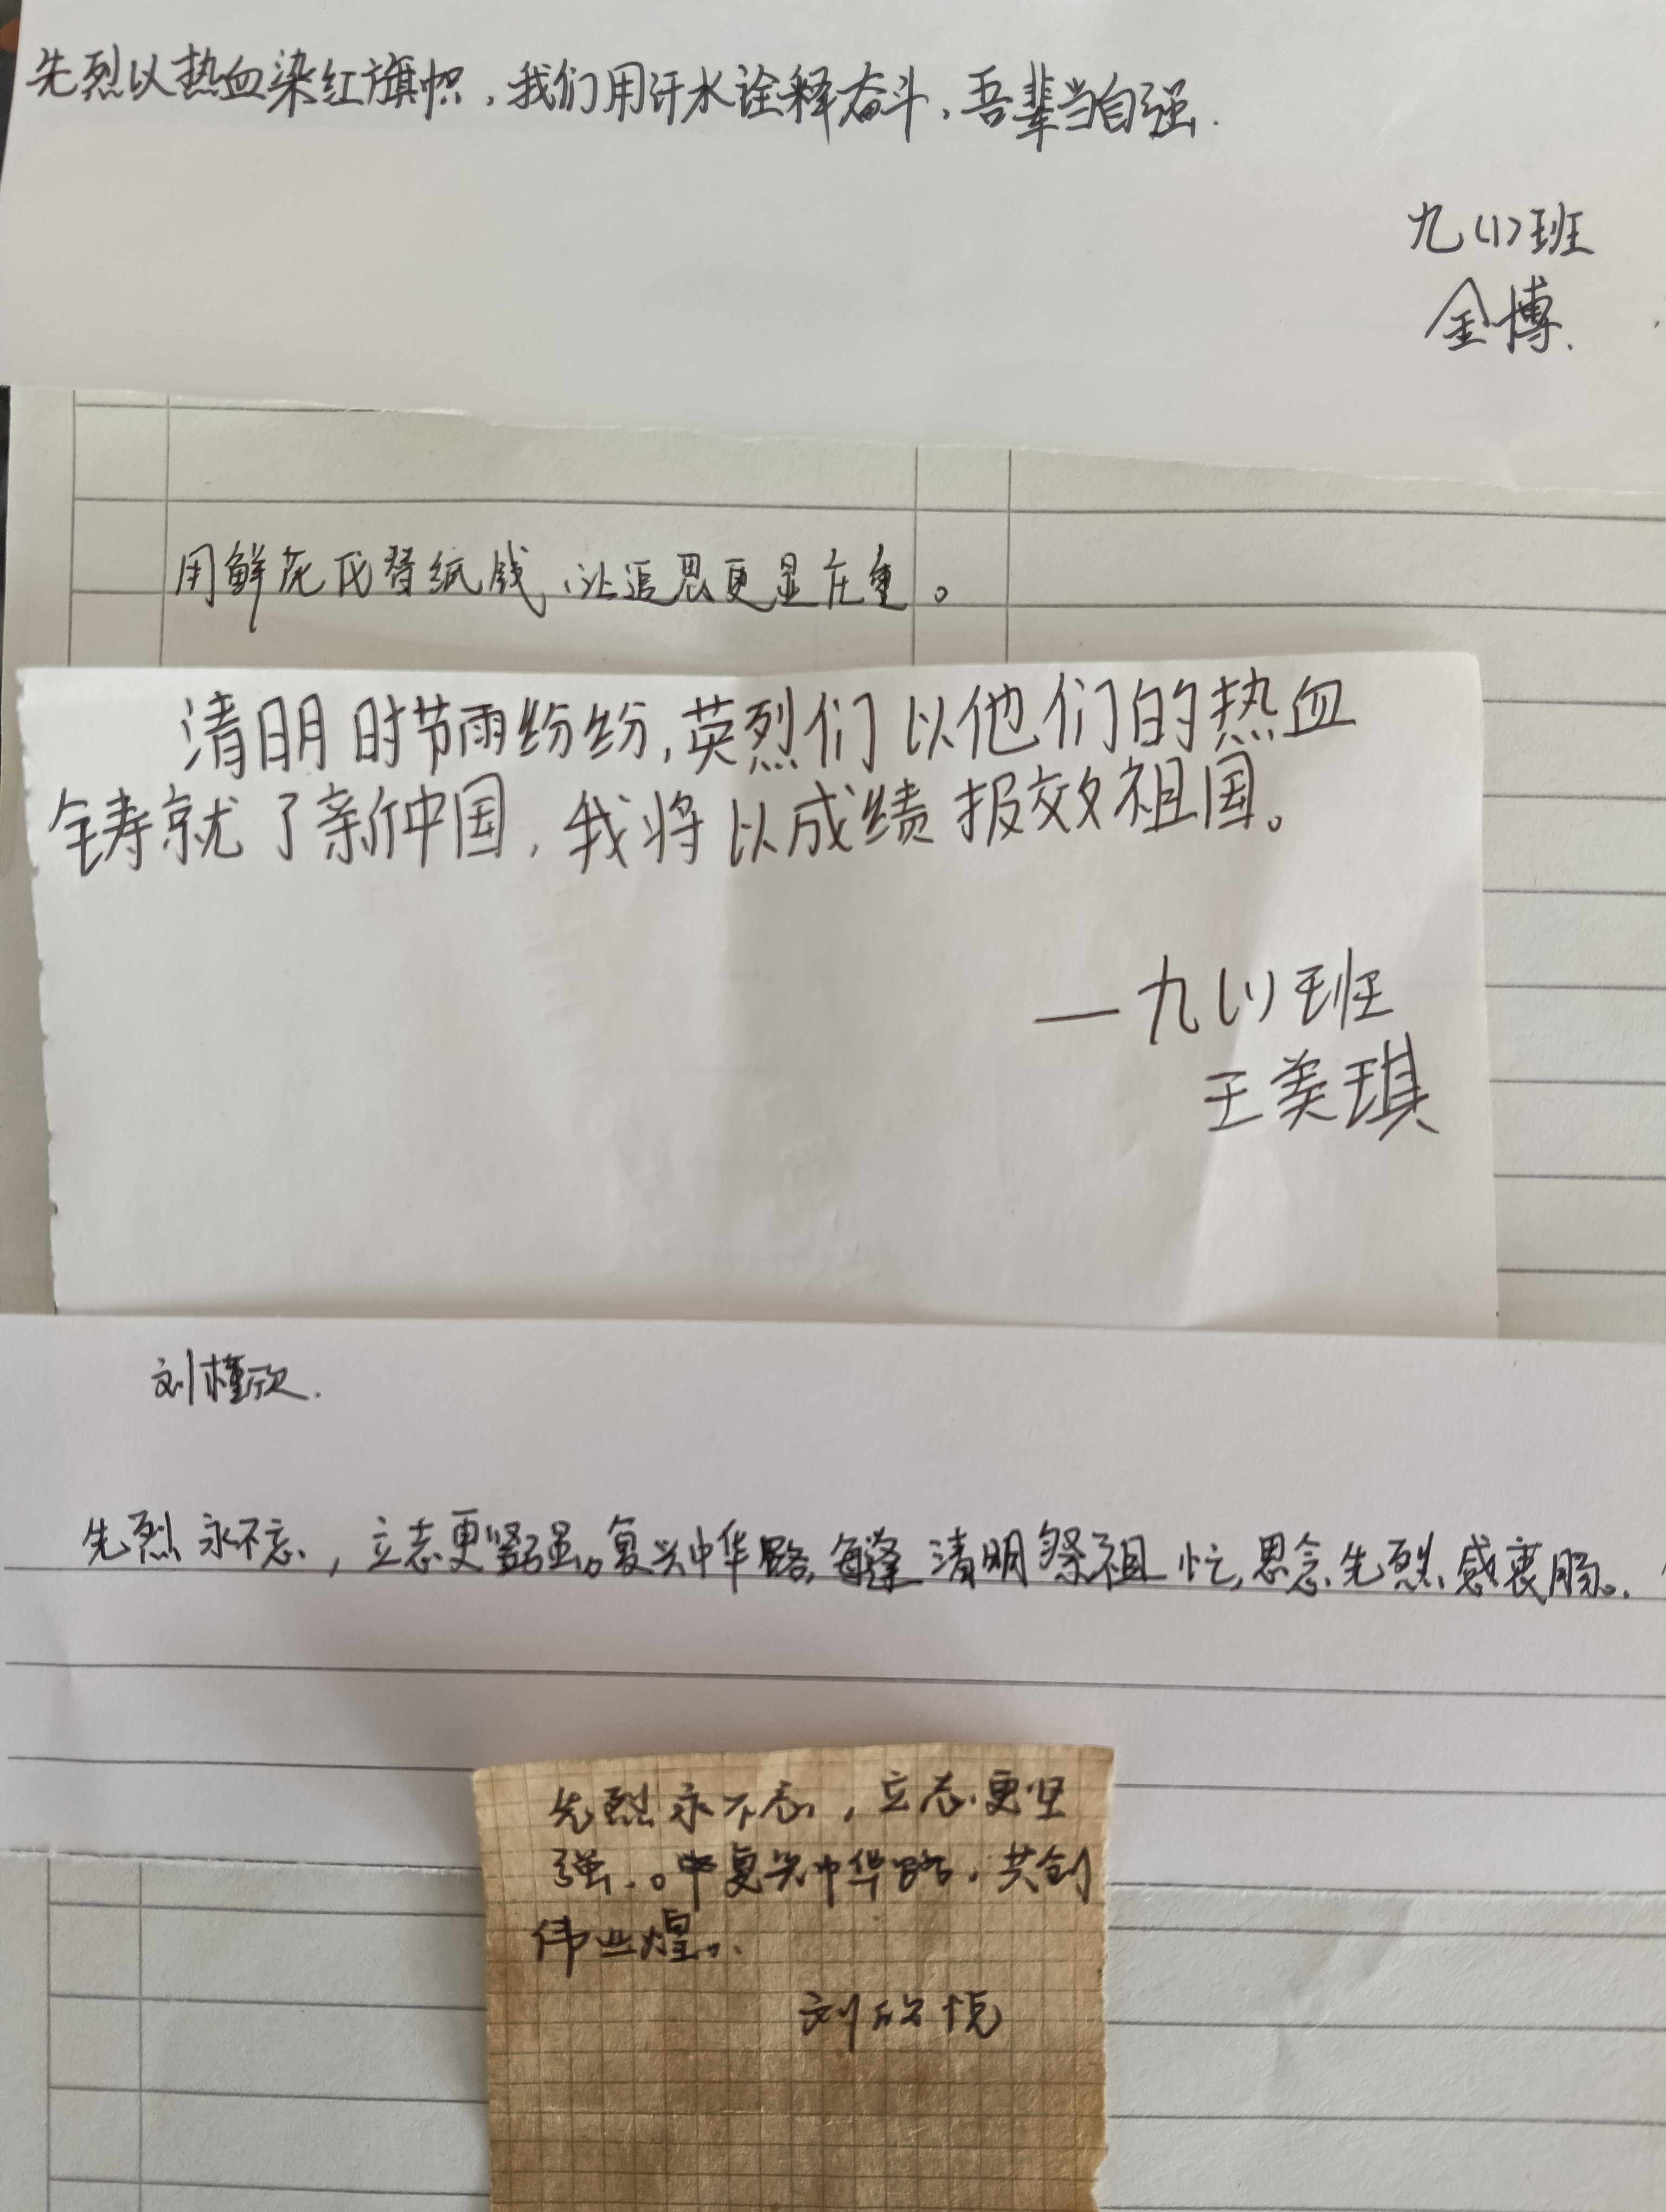 先烈以热血染红旗帜，我们用汗水诠释奋斗，吾辈当自强.
九(1)班
金博.
用鲜花代替纸钱，让追思更显庄重。
清明时节雨纷纷,英烈们以他们的热血
铸就了新中国，我将以成绩报效祖国。
—九(1)班
王美琪
刘槿欣.
先烈永不忘，立志更坚强。复兴中华路,每逢清明祭祖忙,思念先烈感衷肠。
先烈永不忘，立志更坚
强。中复兴中华路，共创
伟业煌。
刘欣悦